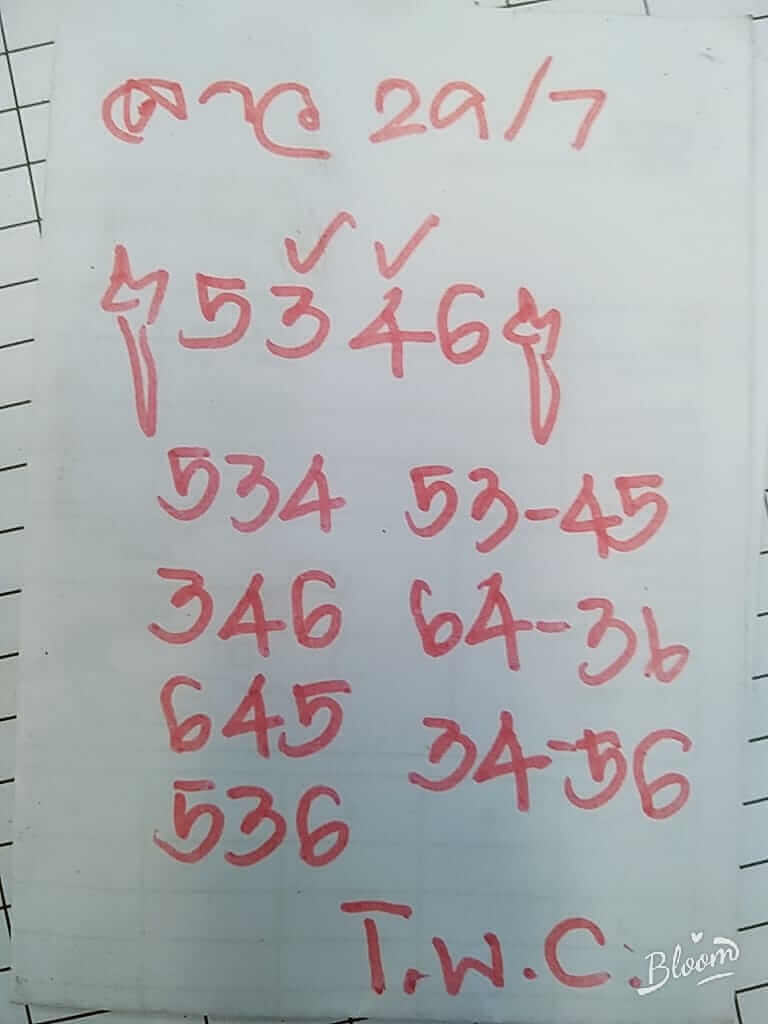 ลาว 29/7
5346
534 53-45
346 64-36
645 34-56
536
T.W.C.
Bloom